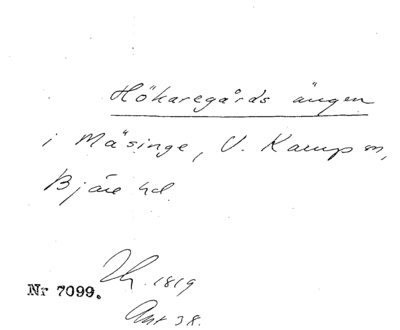 Hökaregårds ängen
i Mäsinge, V. Karup sn,
Bjäre hd.
1819
Nr 7099.
Ant 38.